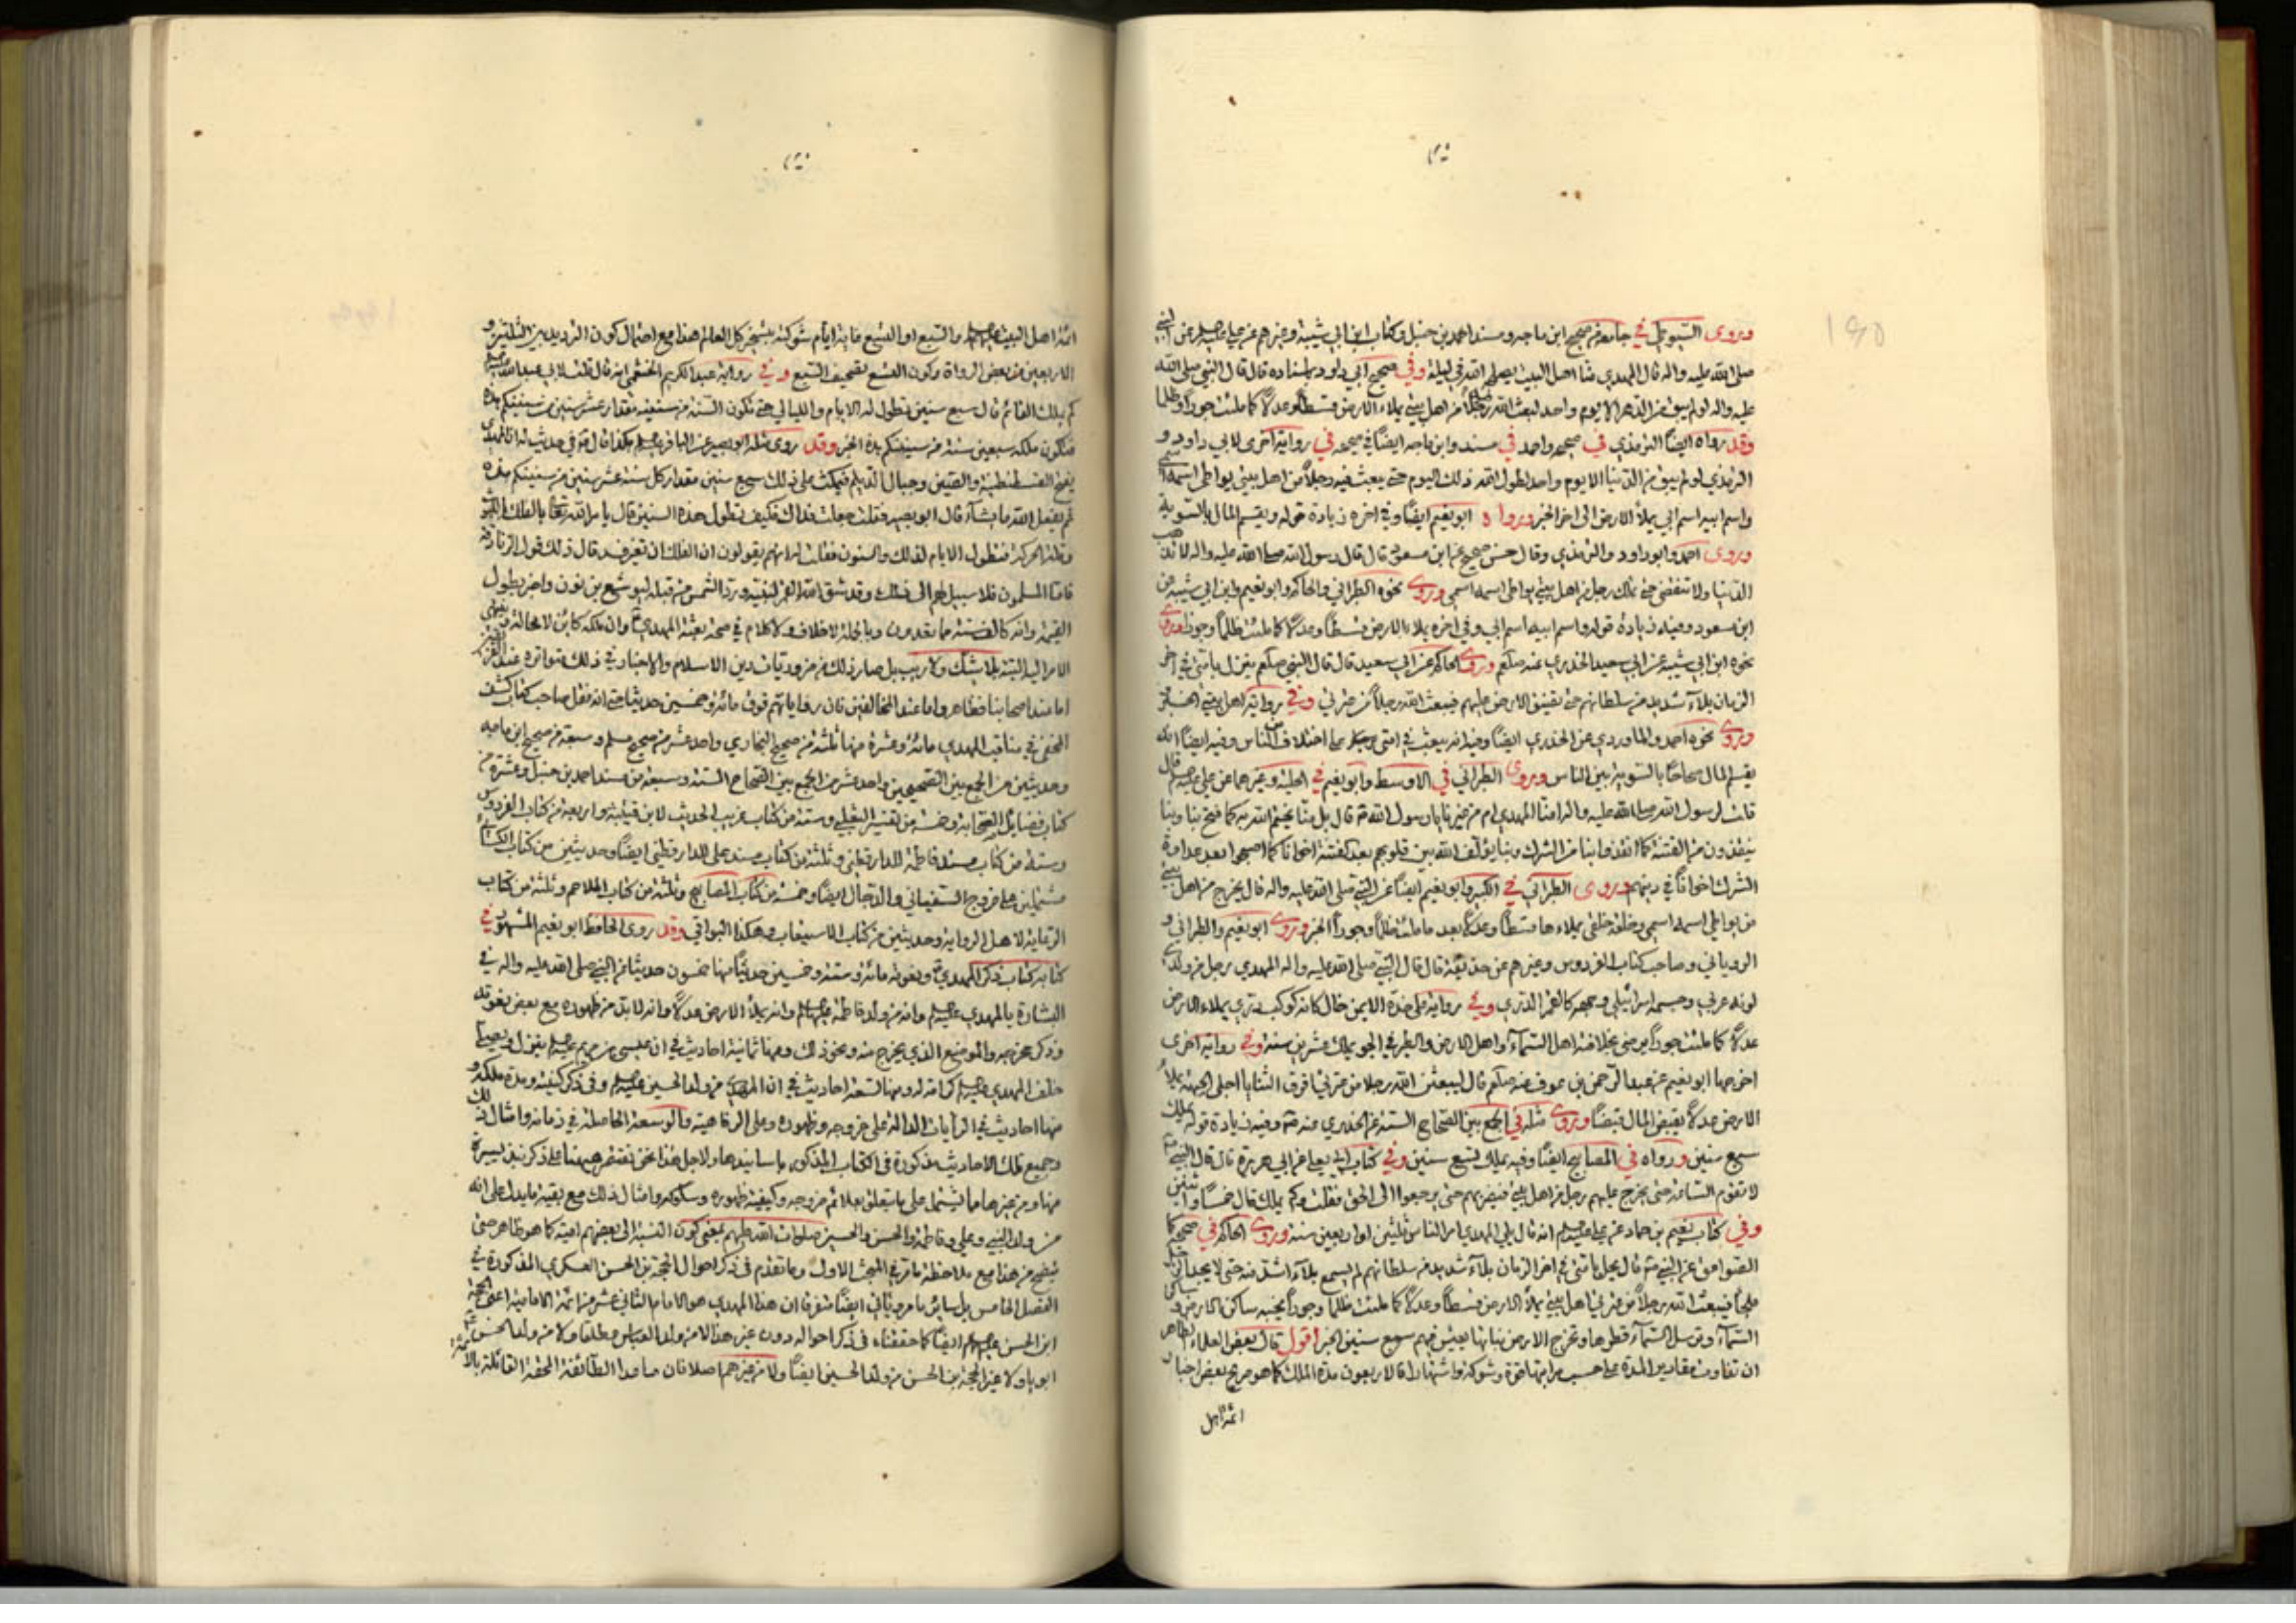 وروى السيوطي في جامعه من صحيح ابن ماجه ومسند احمد بن حنبل وكتاب ابن ابي شيبة وغيرهم عن علي عن النبي
صلى الله عليه واله قال المهدي منا اهل البيت يصلحه الله في ليلة وفي صحيح ابي داود باسناده قال قال النبي صلى الله
عليه واله لو لم يبق من الدهر الا يوم واحد لبعث الله رجلا من اهل بيتي يملاء الارض قسطا وعدلا كما ملئت جورا وظلما
وقد رواه ايضا الترمذي في صحيحه واحمد في مسنده وابن ماجه ايضا في صحيحه في رواية اخرى لابي داود و
الترمذي لو لم يبق من الدنيا الا يوم واحد لطول الله ذلك اليوم حتى يبعث فيه رجلا من اهل بيتي يواطى اسمه اسمي
واسم ابيه اسم ابي يملأ الارض الى اخر الخبر ورواه ابو نعيم ايضا وفي اخره زيادة قوله ويقسم المال بالسوية
وروى احمد وابو داود والترمذي وقال حسن صحيح عن ابن مسعود قال قال رسول الله صلى الله عليه واله لا تذهب
الدنيا ولا تنقضي حتى يملك رجل من اهل بيتي يواطى اسمه اسمي وروى نحوه الطبراني والحاكم وابو نعيم وابن ابي شيبة عن
ابن مسعود وفيه زيادة قوله واسم ابيه اسم ابي وفي اخره يملاء الارض قسطا وعدلا كما ملئت ظلما وجورا وروى
نحوه ابن ابي شيبة عن ابي سعيد الخدري عنه صلعم وروى الحاكم عن ابي سعيد قال قال النبي صلعم ينزل بامتي في اخر
الزمان بلاء شديد من سلطانهم حتى تضيق الارض عليهم فيبعث الله رجلا من عترتي وفي رواية اهل بيتي الخبر
وروى نحوه احمد والماوردي عن الخدري ايضا وفيه انه يبعث في امتي على اختلاف من الناس وفيه ايضا انه
يقسم المال صحاحا بالسوية بين الناس وروى الطبراني في الاوسط وابو نعيم في الحلية وغيرهما عن علي قال
قلت لرسول الله صلى الله عليه واله امنا المهدي ام من غيرنا يا رسول الله قال بل منا يختم الله به كما فتح بنا وبنا
ينقذون من الفتنة كما انقذوا بنا من الشرك وبنا يؤلف الله بين قلوبهم بعد الفتنة اخوانا كما اصبحوا بعد عداوة
الشرك اخوانا في دينهم وروى الطبراني في الكبير وابو نعيم ايضا عن النبي صلى الله عليه واله قال يخرج من اهل بيتي
من يواطى اسمه اسمي وخلقه خلقي يملاءها قسطا وعدلا بعد ما ملئت ظلما وجورا الخبر وروى ابو نعيم والطبراني و
الروياني وصاحب كتاب الفردوس وغيرهم عن حذيفة قال قال النبي صلى الله عليه واله المهدي رجل من ولدي
لونه عربي وجسمه اسرائيلي وجهه كالقمر الدري وفي رواية على خده الايمن خال كانه كوكب دري يملاء الارض
عدلا كما ملئت جورا يرضى بخلافته اهل السماء واهل الارض والطير في الجو يملك عشرين سنة وفي رواية اخرى
اخرجها ابو نعيم عن عبد الرحمن بن عوف عنه صلعم قال ليبعثن الله رجلا من عترتي افرق الثنايا اجلى الجبهة يملأ
الارض عدلا يفيض المال فيضا وروى مثله في الجمع بين الصحاح الستة عن الخدري عنه وفيه زيادة قوله يملك
سبع سنين ورواه في المصابيح ايضا وفيه يملك تسع سنين وفي كتاب ابي يعلى عن ابي هريرة قال قال النبي
لا تقوم الساعة حتى يخرج عليهم رجل من اهل بيتي فيضربهم حتى يرجعوا الى الحق فقلت وكم يملك قال خمسا واثنين
وفي كتاب نعيم بن حماد عن علي انه قال يلي المهدي امر الناس ثلثين او اربعين سنة وروى الحاكم في صحيحه
عن النبي قال يحل بامتي في اخر الزمان بلاء شديد من سلطانهم لم يسمع بلاء اشد منه حتى لا يجد الرجل
ملجأ فيبعث الله رجلا من عترتي اهل بيتي يملأ الارض قسطا وعدلا كما ملئت ظلما وجورا يحبه ساكن الارض وساكن
السماء وترسل السماء قطرها وتخرج الارض نباتها يعيش فيهم سبع سنين الخبر اقول قال بعض العلماء الظاهر
ان تفاوت مقادير المدة على حسب مراتبها قوة وشوكة واشتهارا فالاربعون مدة الملك كما هو صريح بعض اخبار
ائمة اهل
ائمة اهل البيت والسبع او التسع غاية ايام شوكته بتسخير كل العالم هذا مع احتمال كون الترديد بين الثلثين و
الاربعين من بعض الرواة وكون التسع تصحيف السبع وفي رواية عبد الكريم الخثعمي انه قال قلت لابي عبد الله
كم يملك القائم قال سبع سنين تطول له الايام والليالي حتى تكون السنة من سنينه مقدار عشر سنين من سنينكم هذه
فيكون ملكه سبعين سنة من سنينكم هذه الخبر وقد روى مثله ابو بصير عن الباقر في حديث له ان المهدي
يفتح القسطنطينية والصين وجبال الديلم فيمكث على ذلك سبع سنين مقدار كل سنة عشر سنين من سنينكم هذه
ثم يفعل الله ما يشاء قال ابو بصير فقلت جعلت فداك فكيف تطول هذه السنين قال يامر الله تعالى الفلك باللبوث
وقلة الحركة فتطول الايام لذلك والسنون فقلت انهم يقولون ان الفلك ان تغير فسد قال ذلك قول الزنادقة
فاما المسلمون فلا سبيل لهم الى ذلك وقد شق الله القمر لنبيه ورد الشمس من قبله ليوشع بن نون واخبر بطول
القيمة وانه كالف سنة مما تعدون وبالجملة لا خلاف ولا كلام في صحة بعثة المهدي وان ملكه كائن لا محالة
الامر اليه البتة بلا شك ولا ريب بل صار ذلك من ضروريات دين الاسلام والاخبار في ذلك متواترة عند
اما عند اصحابنا فظاهر واما عند المخالفين فان رواياتهم فوق مائة وخمسين حديثا حتى انه نقل صاحب كتاب كشف
المخفي في مناقب المهدي مائة وعشرة منها ثلثة من صحيح البخاري واحد عشر من صحيح مسلم وسبعة من صحيح ابن ماجه
وحديثين من الجمع بين الصحيحين واحد عشر من الجمع بين الصحاح الستة وسبعة من مسند احمد بن حنبل وعشرة من
كتاب فضايل الصحابة وخمسة من تفسير الثعلبي وستة من كتاب غريب الحديث لابن قتيبة واربعة من كتاب الفردوس
وستة من كتاب مسند فاطمة للدارقطني وثلثة من كتاب مسند علي للدارقطني ايضا وحديثين من كتاب الكسائي
مشتملين على خروج السفياني والدجال ايضا وخمسة من كتاب المصابيح وثلثة من كتاب الملاحم وثلثة من كتاب
الرعاية لاهل الرواية وحديثين من كتاب الاستيعاب وهكذا البواقي وقد روى الحافظ ابو نعيم المشهور في
كتابه كتاب ذكر المهدي ونعوته مائة وستة وخمسين حديثا منها خمسون حديثا عن النبي صلى الله عليه واله في
البشارة بالمهدي وانه من ولد فاطمة وانه يملأ الارض عدلا وانه لا بد من ظهوره مع بعض نعوته
وذكر مخرجه والموضع الذي يخرج منه ونحو ذلك ومنها ثمانية احاديث في ان عيسى بن مريم ينزل ويصلي
خلف المهدي كرامة له ومنها تسعة احاديث في ان المهدي من ولد الحسين وفي ذكر كيفية ومدة ملكه و
منها احاديث في الرايات الدالة على خروجه وظهوره وعلى الرفاهية والوسعة الحاصلة في زمانه وامثال ذلك
وجميع تلك الاحاديث مذكورة في الكتاب المذكور باسانيدها ولاجل هذا نحن نقتصر هيهنا على ذكر نبذ يسيرة
منها ومن غيرها مما يشتمل على ما يتعلق بعلائم خروجه وكيفية ظهوره وسلوكه وامثال ذلك مع بقية ما يدل على انه
من ولد النبي وعلي وفاطمة والحسن والحسين صلوات الله عليهم بمعنى كون النسبة الى بعضهم امية كما هو ظاهر حتى
يتضح من هذا مع ملاحظة ما مر في المبحث الاول وما تقدم في ذكر احوال الحجة بن الحسن العسكري المذكورة في
الفصل الخامس بل سائر ما مر وياتي ايضا متفرقا ان هذا المهدي هو الامام الثاني عشر من ائمة الامامية اعني الحجة
ابن الحسن ايضا كما حققناه في ذكر احواله دون غير هذا لا من ولد العباس مطلقا ولا من ولد الحسن
ابوه ولا غير الحجة بن الحسن من ولد الحسين ايضا ولا من غيرهم اصلا فان ما عدا الطائفة المحقة القائلة بالائمة